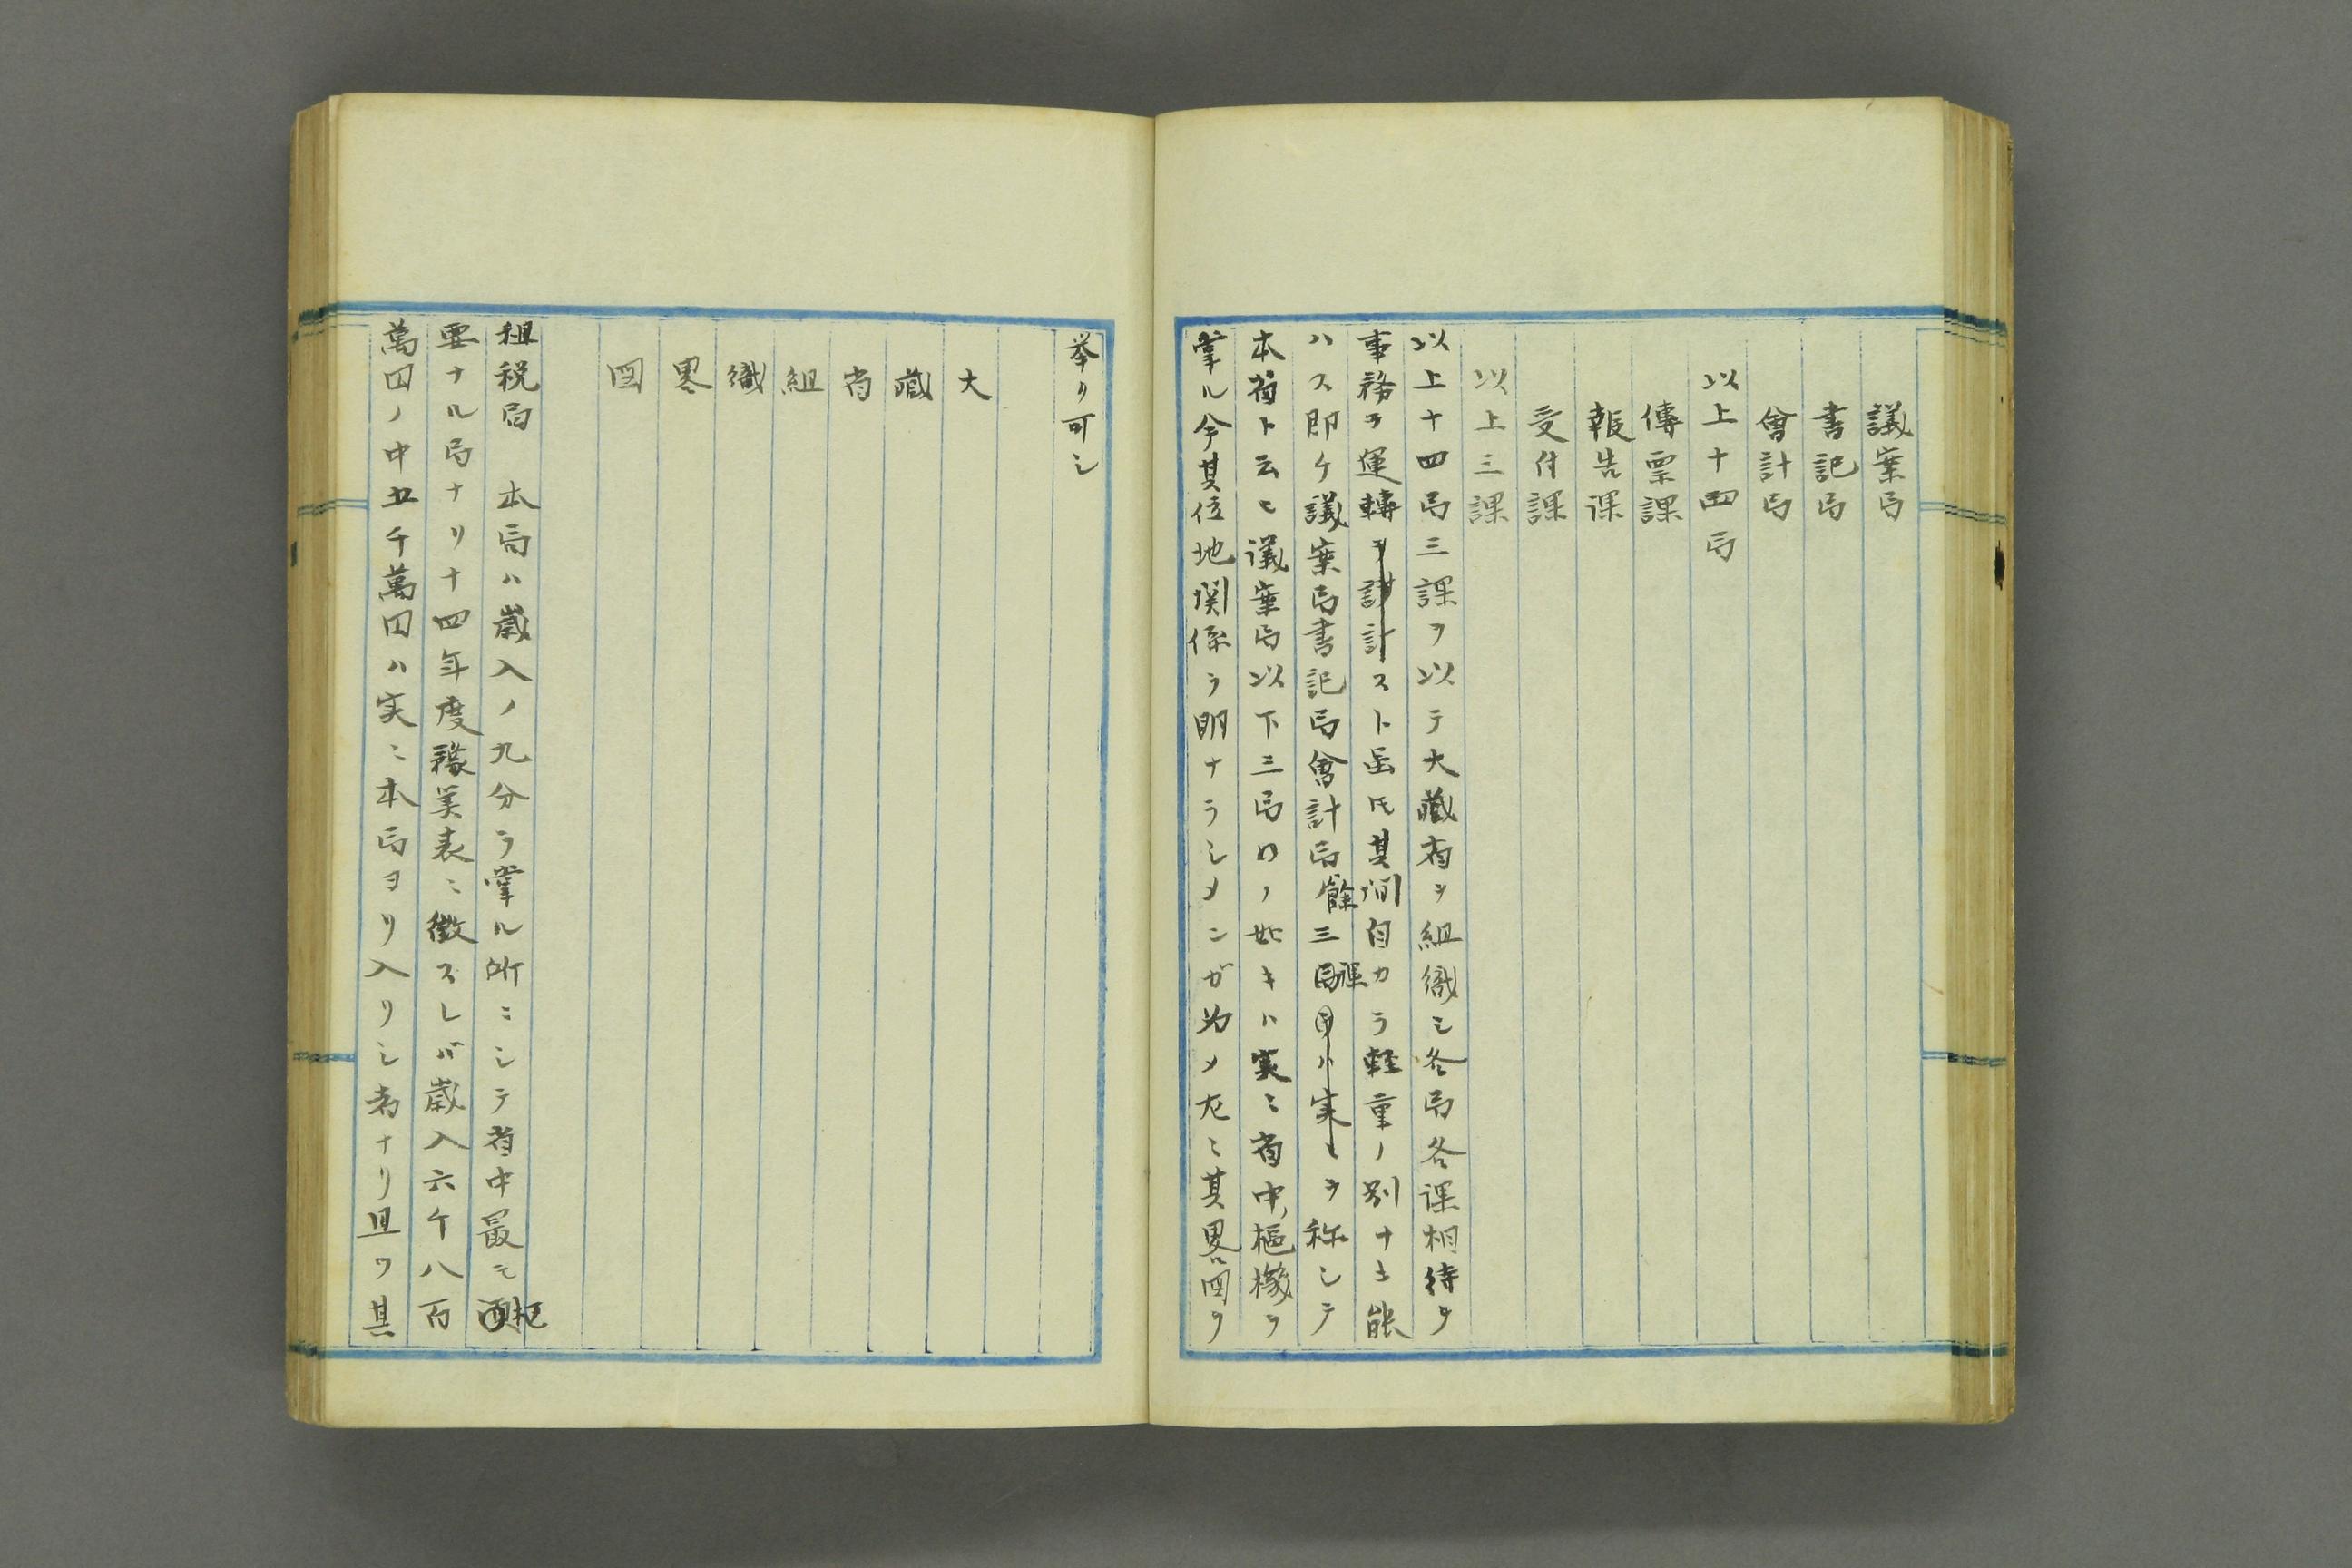 議案局
書記局
會計局
以上十四局
傳票課
報告課
受付課
以上三課
以上十四局三課ヲ以テ大藏省ヲ組織シ各局各課相待テ
事務ヲ運轉ヲ計スト虽トモ其間自カラ軽重ノ別ナキ能
ハス即ケ議案局書記局會計局餘三局ハ実ヲ称シテ
本省ト云ヒ議案局以下三局ノ如キハ実ニ省中樞機ヲ
掌ル今其位地関係ヲ明ナラシメンガ为メ左ニ其畧図ヲ
挙リ可シ
大
藏
省
組
織
畧
図
租税局 本局ハ歳入ノ九分ヲ掌ル所ニシテ省中最モ枢
要ナル局ナリ十四年度豫算表ニ徴スレバ歳入六千八百
萬円ノ中五千萬円ハ実ニ本局ヨリ入リシ者ナリ且ツ其